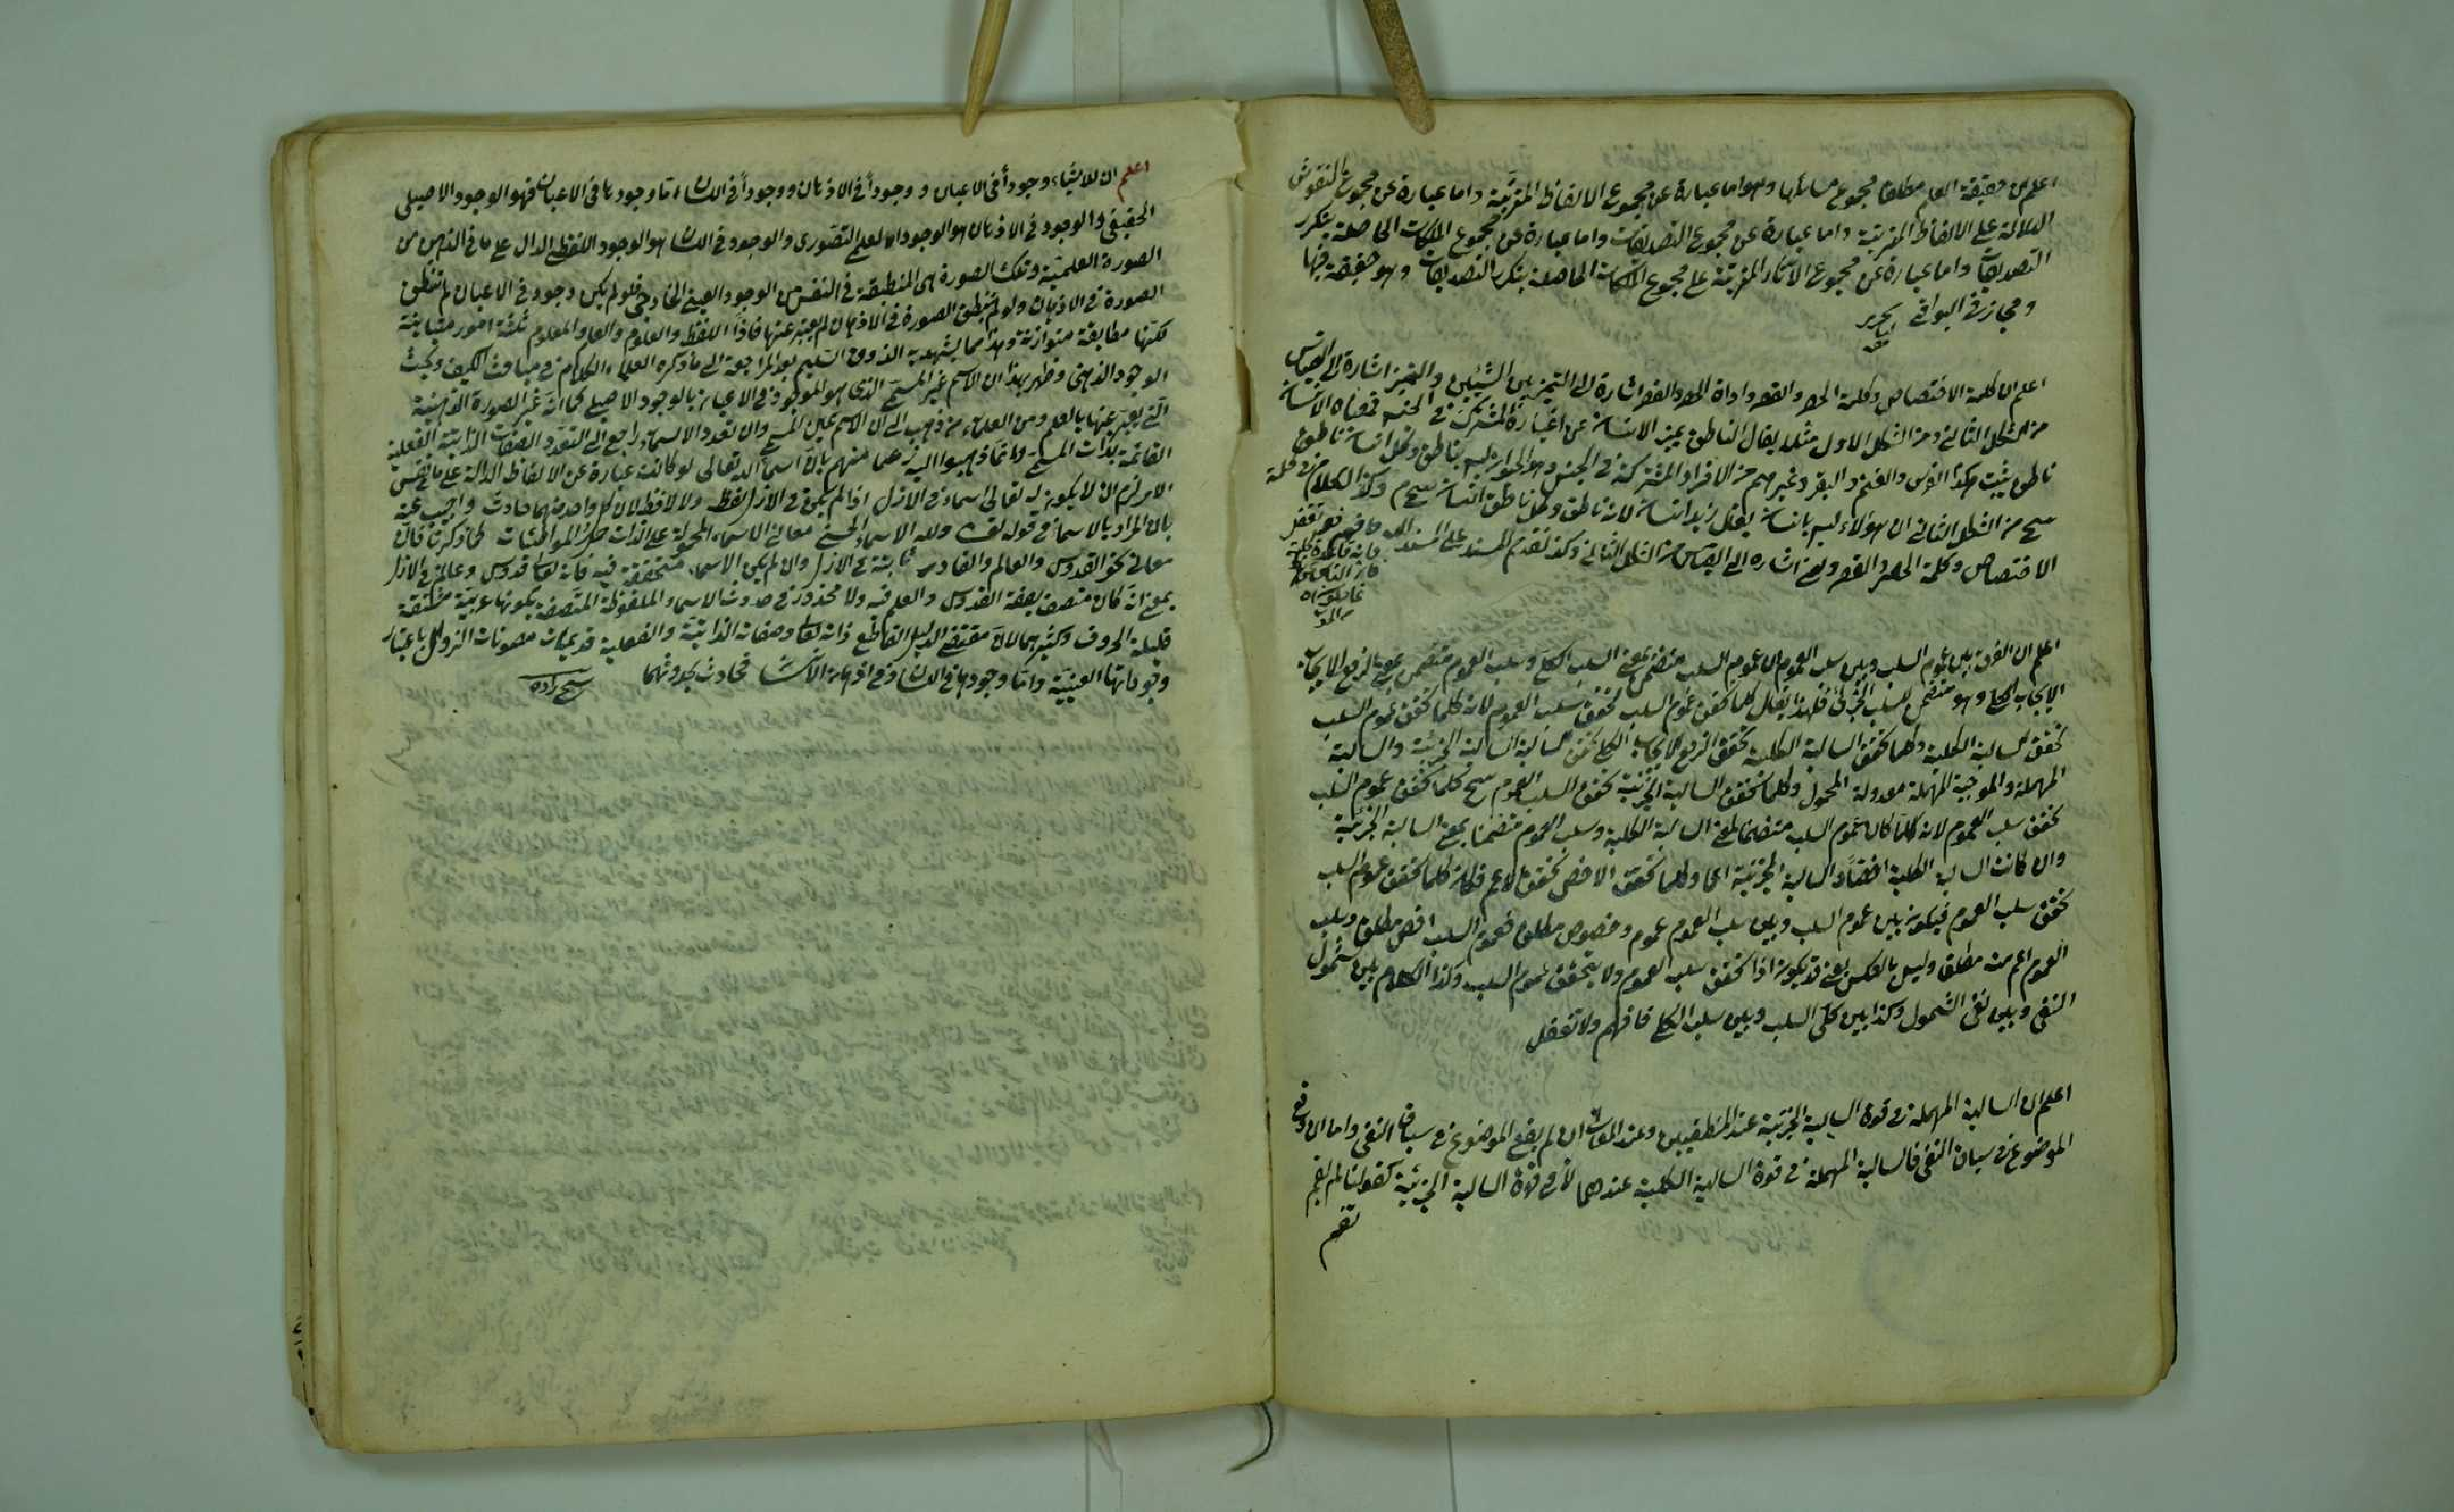 اعلم ان حقيقة العلم مطلقا مجموع مسائلها وهو اما عبارة عن مجموع الالفاظ المترتبة واما عبارة عن مجموع النقوش
الدلالة على الالفاظ المترتبة واما عبارة عن مجموع التصديقات واما عبارة عن مجموع الملكات الحاصلة بتكرر
التصديقات واما عبارة عن مجموع الاثار المترتبة على مجموع الملكات الحاصلة بتكرر التصديقات وهو حقيقة فيها
ومجاز في البواقي
اعلم ان كلمة الاختصاص وكلمة الحصر والقصر واداة الحصر والقصر اشارة الى التميز بين الشيئين والتميز اشارة الى القياس
من الشكل الثاني ومن الشكل الاول مثلا يقال الناطق يميز الانسان عن اغياره المشترك في الجنس
ناطق يثبت هكذا الفرس والغنم والبقر وغيرهم من الافراد المشتركة في الجنس وهو الحيوان ليس بناطق وكل انسان ناطق
من الشكل الثاني ان هؤلاء ليس بانسان يقال زيد انسان لانه ناطق وكل ناطق انسان وكذا الكلام في كلمة
الاختصاص وكلمة الحصر والقصر يعني اشارة الى القياس من الشكل الثاني وكذا تقديم المسند على المسند اليه فافهم
اعلم ان الفرق بين عموم السلب وبين سلب العموم ان عموم السلب متضمن بمعنى السلب الكلي وسلب العموم متضمن بمعنى لرفع الايجاب
الايجاب الكلي وهو متضمن للسلب الجزئي فلهذا يقال كلما تحقق عموم السلب تحقق سلب العموم لانه كلما تحقق عموم السلب
تحقق السالبة الكلية وكلما تحقق السالبة الكلية تحقق الرفع الايجاب الكلي السالبة الجزئية والسالبة
المهملة والموجبة المهملة معدولة المحمول وكلما تحقق السالبة الجزئية تحقق السلب العموم ينتج كلما تحقق عموم السلب
تحقق سلب العموم لانه كلما كان عموم السلب متضمنا لمعنى السالبة الكلية وسلب العموم متضمنا بمعنى السالبة الجزئية
وان كانت السالبة الكلية اخصا والسالبة الجزئية اعما وكلما تحقق الاخص تحقق الاعم فكان كلما تحقق عموم السلب
تحقق سلب العموم فيكون بين عموم السلب وبين سلب العموم عموم وخصوص مطلق فعموم السلب اخص مطلق وسلب
العموم اعم منه مطلق وليس بالعكس يعني قد يكون اذا تحقق سلب العموم ولا يتحقق عموم السلب وكذا الكلام بين شمول
النفي وبين نفي الشمول وكذا بين كلي السلب وبين سلب الكلي فافهم ولا تغفل
اعلم ان السالبة المهملة في قوة السالبة الجزئية عند المنطقيين وعند ان لم يقع الموضوع في سياق النفي واما ان وقع
الموضوع في سياق النفي فالسالبة المهملة في قوة السالبة الكلية عندهما لا في قوة السالبة الجزئية كقولنا لم يقم
اعلم ان للاشياء وجودا في الاعيان ووجودا في الاذهان ووجودا في اللسان اما وجودها في الاعيان فهو الوجود الاصيلي
الحقيقي والوجود في الاذهان هو الوجود العلمي التصوري والوجود في اللسان هو الوجود اللفظي الدال على ما في الذهن من
الصورة العلمية وتلك الصورة هي المنطبقة في النفس من الوجود العيني الخارجي فلو لم يكن وجود في الاعيان لم تنطبق
الصورة في الاذهان ولو لم تنطبق الصورة في الاذهان لم يعبر عنها فاذا اللفظ والعلم والمعلوم ثلثة امور متباينة
لكنها مطابقة متوازنة وهذا مما يشهد به الذوق السليم بعد المراجعة الى ما ذكره العلماء الكلام في مباحث الكيف وبحث
الوجود الذهني وظهر بهذا ان الاسم غير المسمى الذي هو الموجود في الاعيان بالوجود الاصيلي كما انه غير الصورة الذهنية
التي يعبر عنها بالعلم ومن العلماء من ذهب الى ان الاسم عين المسمى وان تعدد الاسماء راجع الى التعدد الصفات الذاتية الفعلية
القائمة بذات المسمى وانما ذهبوا اليه زعما منهم بان اسماء الله تعالى لو كانت عبارة عن الالفاظ الدالة على
الامر لزم ان لا يكون له تعالى اسماء في الازل اذ لم يكن في الازل لفظ ولا لافظ لان كل واحد منهما حادث واجيب عنه
بان المراد بالاسماء في قوله تعالى ولله الاسماء الحسنى معاني الاسماء المحمولة على الذات
معاني نحو القدوس والعالم والقادر ثابتة في الازل وان لم يكن الاسماء متحققة فيه فانه تعالى قدوس وعالم في الازل
بمعنى انه كان متصف بصفة القدوس والعلم فيه ولا محذور في حدوث الاسماء الملفوظة المتصفة بكونها عربية مشتقة
قليلة الحروف وكثيرها لان مقتضى الدليل القاطع ذاته تعالى وصفاته الذاتية والفعلية قديمات مصونات الزوال باعتبار
وجوداتها العينية واما وجودها في اللسان وفي اذهان الانسان فحادث بحدوثهما